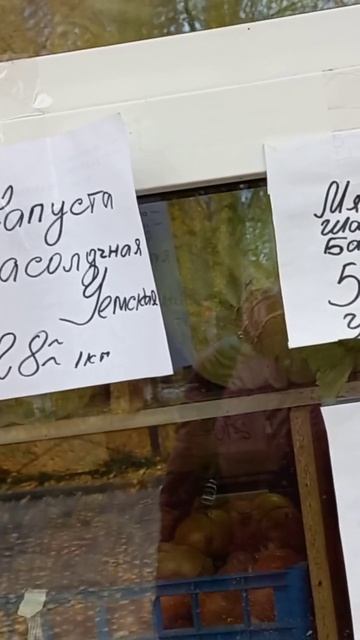 Капуста
засолочная
Уемская
28= 1кг
Мя
ша
Ба
5